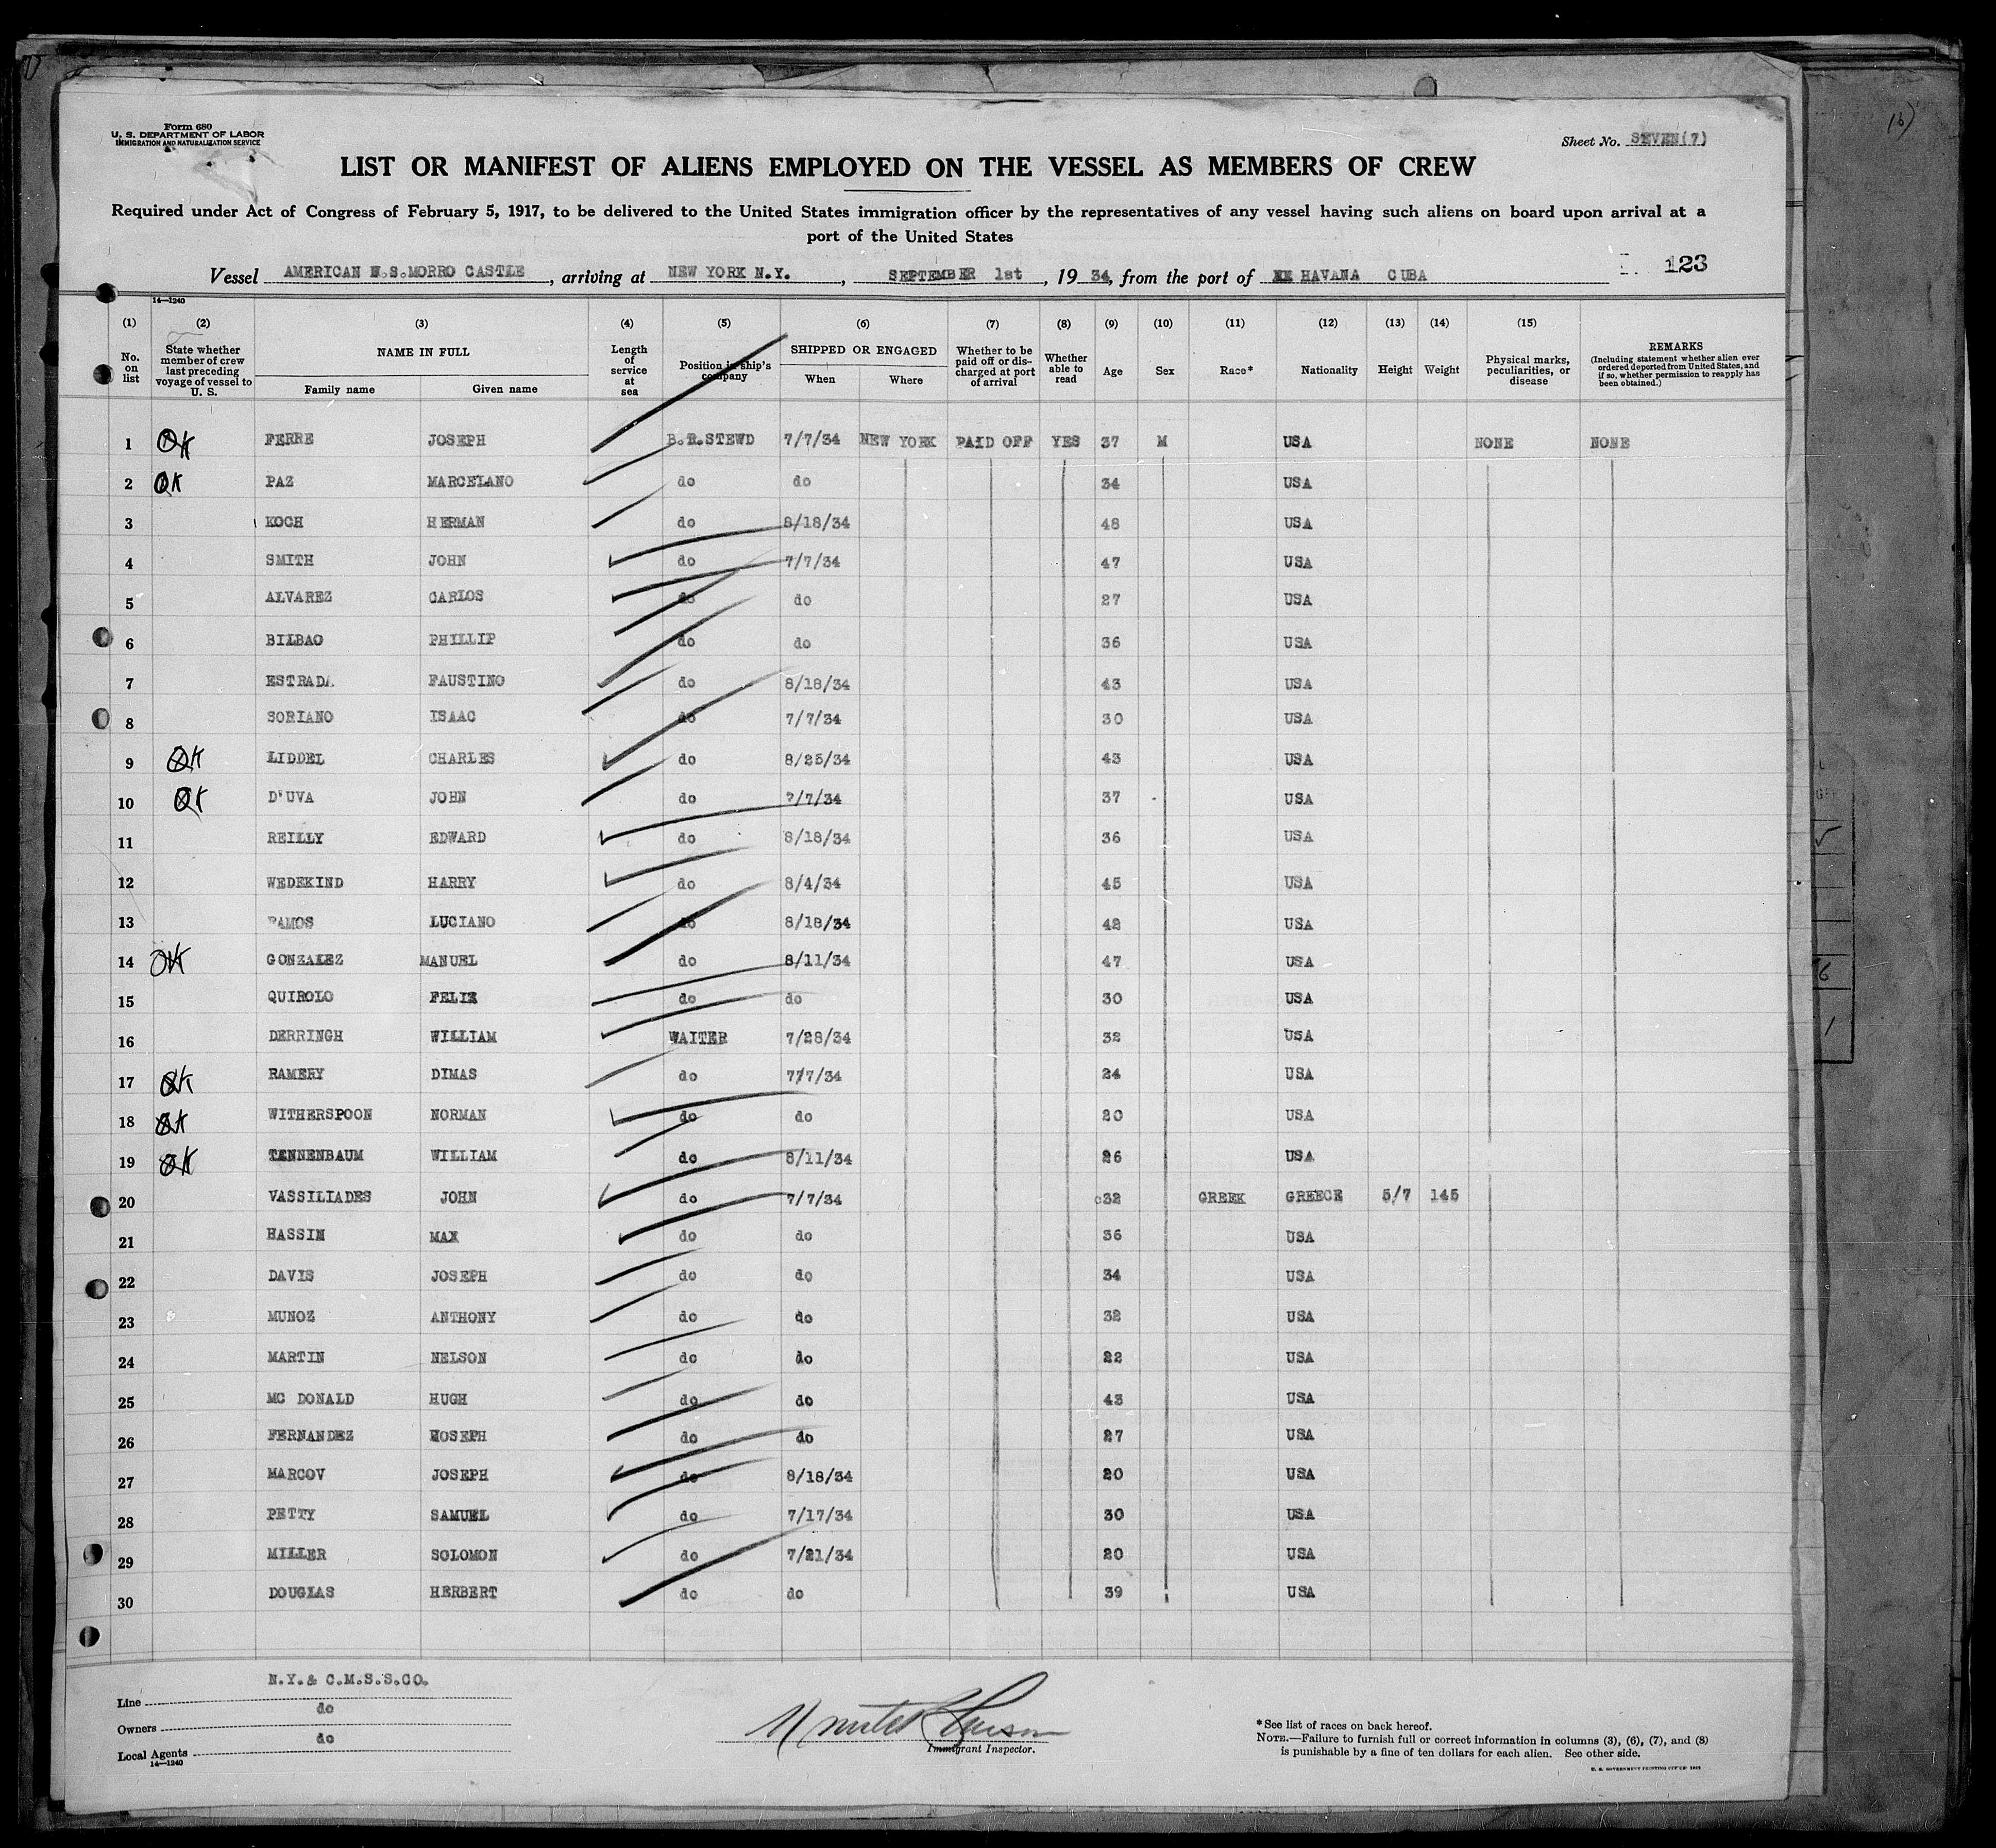 Form 680
U. S. DEPARTMENT OF LABOR
IMMIGRATION AND NATURALIZATION SERVICE
Sheet No. SEVEN(7)
LIST OR MANIFEST OF ALIENS EMPLOYED ON THE VESSEL AS MEMBERS OF CREW
Required under Act of Congress of February 5, 1917, to be delivered to the United States immigration officer by the representatives of any vessel having such aliens on board upon arrival at a
port of the United States
Vessel AMERICAN N.S.MORRO CASTLE, arriving at NEW YORK N.Y., SEPTEMBER 1st, 1934, from the port of HAVANA CUBA
123
14—1240
(1) (2) (3) (4) (5) (6) (7) (8) (9) (10) (11) (12) (13) (14) (15)
No. on list
State whether member of crew last preceding voyage of vessel to U. S.
NAME IN FULL
Family name Given name
Length of service at sea
Position in ship's company
SHIPPED OR ENGAGED
When Where
Whether to be paid off or discharged at port of arrival
Whether able to read
Age
Sex
Race*
Nationality
Height
Weight
Physical marks, peculiarities, or disease
REMARKS
(Including statement whether alien ever ordered deported from United States, and if so, whether permission to reapply has been obtained.)
1 OK FERRE JOSEPH B.R.STEWD 7/7/34 NEW YORK PAID OFF YES 37 M USA NONE NONE
2 OK PAZ MARCELANO do do 34 USA
3 KOCH HERMAN do 8/18/34 48 USA
4 SMITH JOHN do 7/7/34 47 USA
5 ALVAREZ CARLOS do do 27 USA
6 BILBAO PHILLIP do do 36 USA
7 ESTRADA FAUSTINO do 8/18/34 43 USA
8 SORIANO ISAAC do 7/7/34 30 USA
9 OK LIDDEL CHARLES do 8/25/34 43 USA
10 OK D'UVA JOHN do 7/7/34 37 USA
11 REILLY EDWARD do 8/18/34 36 USA
12 WEDEKIND HARRY do 8/4/34 45 USA
13 RAMOS LUCIANO do 8/18/34 42 USA
14 OK GONZALEZ MANUEL do 8/11/34 47 USA
15 QUIROLO FELIX do do 30 USA
16 DERRINGH WILLIAM WAITER 7/28/34 32 USA
17 OK RAMERY DIMAS do 7/7/34 24 USA
18 OK WITHERSPOON NORMAN do do 20 USA
19 OK TENNENBAUM WILLIAM do 8/11/34 26 USA
20 VASSILIADES JOHN do 7/7/34 32 GREEK GREECE 5/7 145
21 HASSIN MAX do do 36 USA
22 DAVIS JOSEPH do do 34 USA
23 MUNOZ ANTHONY do do 32 USA
24 MARTIN NELSON do do 22 USA
25 MC DONALD HUGH do do 43 USA
26 FERNANDEZ HOSEPH do do 27 USA
27 MARCOV JOSEPH do 8/18/34 20 USA
28 PETTY SAMUEL do 7/17/34 30 USA
29 MILLER SOLOMON do 7/21/34 20 USA
30 DOUGLAS HERBERT do do 39 USA
Line N.Y.& C.M.S.S.CO.
Owners do
Local Agents do
14—1240
Immigrant Inspector.
*See list of races on back hereof.
NOTE.—Failure to furnish full or correct information in columns (3), (6), (7), and (8)
is punishable by a fine of ten dollars for each alien. See other side.